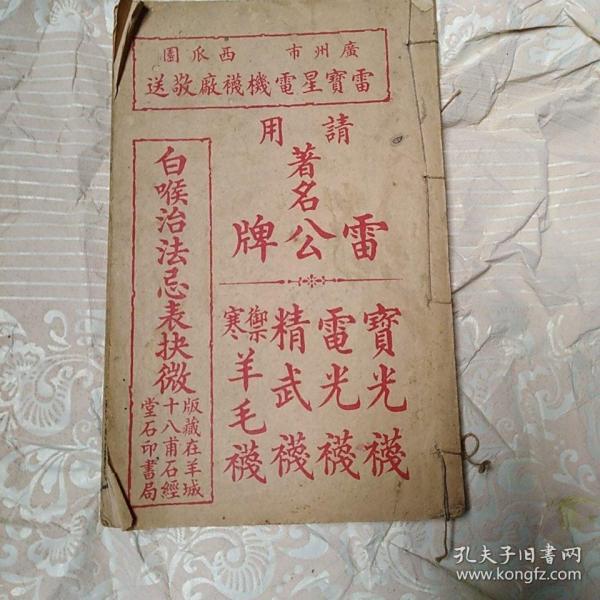 廣州市西瓜園
雷寶星電機襪廠敬送
請用
著名
雷公牌
寶光襪
電光襪
精武襪
禦寒羊毛襪
白喉治法忌表抉微
版藏在羊城
十八甫石經
堂石印書局
孔夫子旧书网
www.kongfz.com